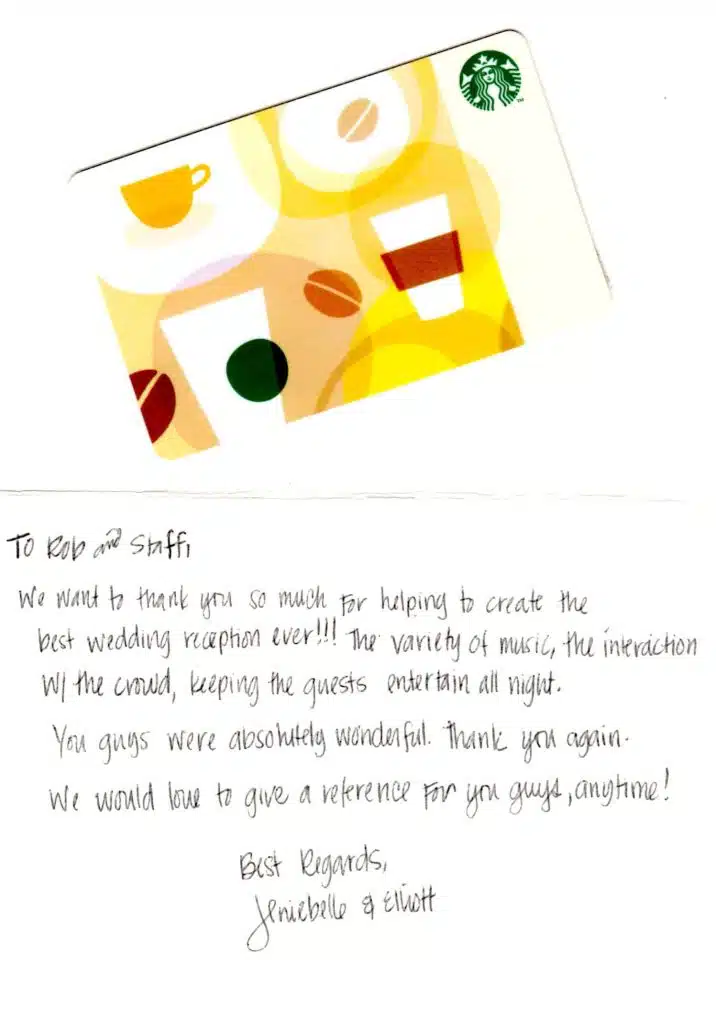 To Rob and Staff,
We want to thank you so much for helping to create the
best wedding reception ever!!! The variety of music, the interaction
w/ the crowd, keeping the guests entertain all night.
You guys were absolutely wonderful. Thank you again.
We would love to give a reference for you guys, anytime!
Best Regards,
Jeniebelle & Elliott